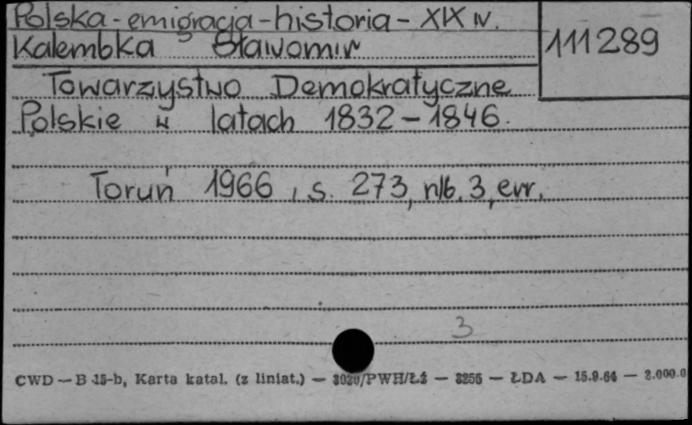 Polska - emigracja - historia - XIX w.
Kalembka Sławomir
111289
Towarzystwo Demokratyczne
Polskie w latach 1832 - 1846.
Toruń 1966, s. 273, nlb. 3, err.
3
CWD — B 15-b, Karta katal. (z liniat.) — 3020/PWH/Ł3 — 3256 — ŁDA — 15.9.64 — 2.000.0